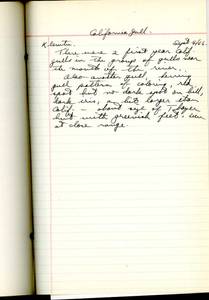 California Gull.
K. Sept 4/66.
There were 2 first year Calif
gulls in the group of gulls near
the mouth of the river.
Also another gull, herring
gull pattern of coloring, red
spot but no dark spot on bill,
dark iris, a bit larger than
Calif. – about size of
but with greenish feet. Seen
at close range.